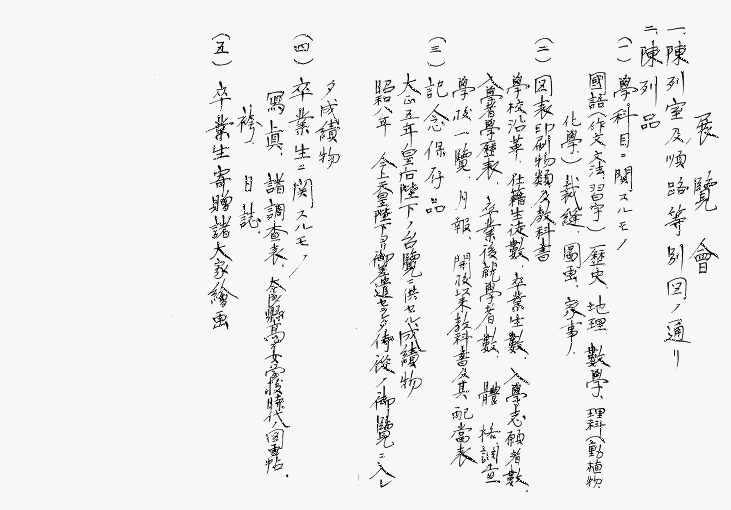 展覽會
一、陳列室及順路等別図ノ通リ
二、陳列品
(一)學科目ニ関スルモノ
國語(作文、文法、習字)歴史、地理、數學、理科(動植物、
化學)裁縫、圖画、家事、
(二)図表印刷物類及教科書
學校沿革、在籍生徒數、卒業生數、入學志願者數、
入學者學歴表、卒業後就學者數、體格調査
學校一覽、月報、開校以來教科書及其配當表
(三)記念保存品
大正五年皇后陛下ノ台覽ニ供セル成績物
昭和八年 今上天皇陛下ヨリ御差遣セラレタ侍從ノ御覽ニ入レ
タ成績物
(四)卒業生ニ関スルモノ
寫眞、諸調査表、奈良縣高女時代ノ図画帖、
袴、日誌、
(五)卒業生寄贈諸大家繪画